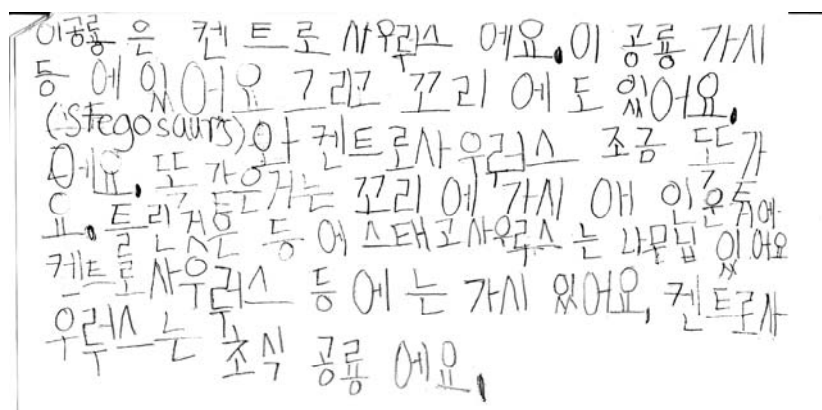 이공룡 은 켄트로 사우루스 에요. 이 공룡 가시
등 에 있어요 그리고 꼬리 에도 있어요.
(Stegosaurs)와 켄트로사우루스 조금 또가
에요. 똑 같은거는 꼬리 에 가시 애
요. 틀린것은 등 에 스태고사우루스 는 나뭇닙 있어요
켄트로사우루스 등 에 는 가시 있어요, 켄트로사
우루스는 초식 공룡 에요.